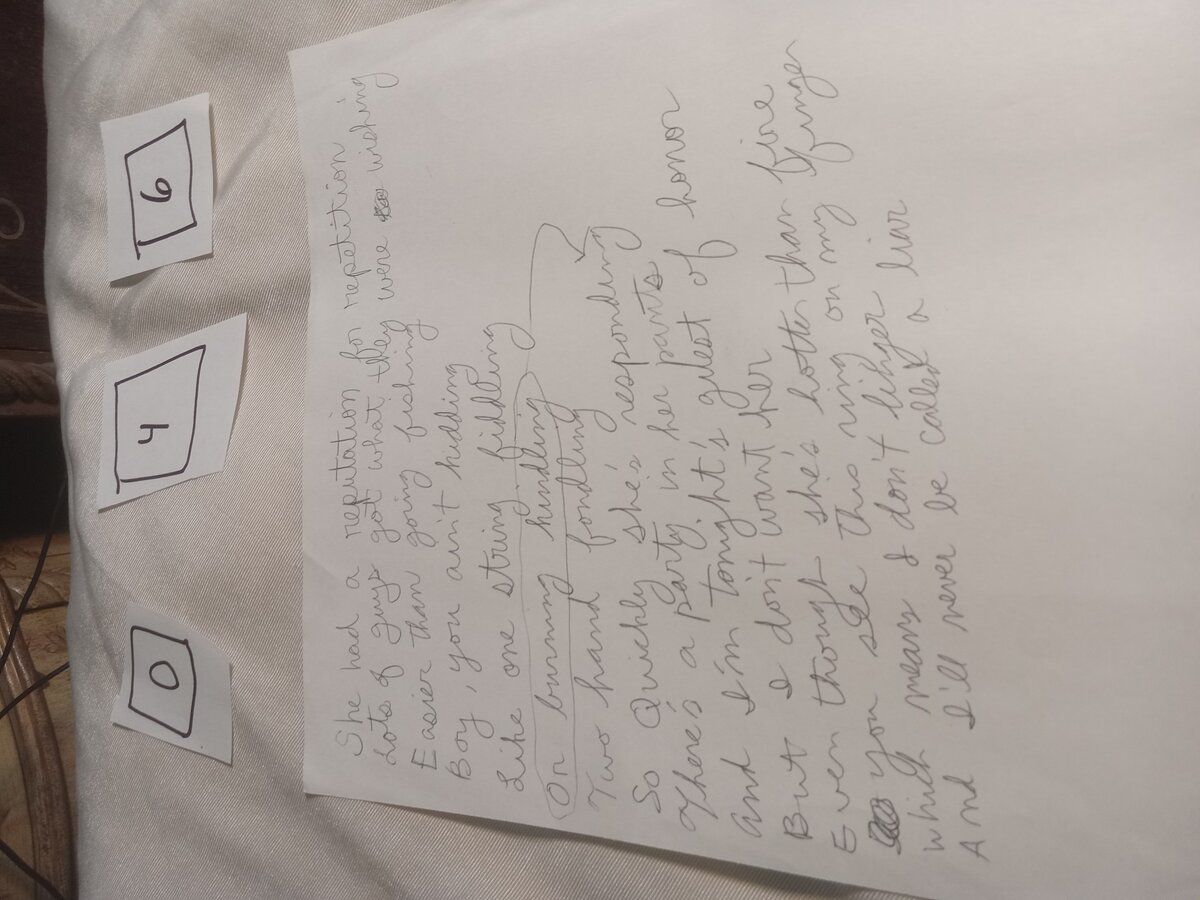 0 4 6
She had a reputation for repetition
Lots of guys got what they were wishing
Easier than going fishing
Boy, you ain't kidding
Like one string fiddling
Or burning kindling
Two hand fondling
So Quickly she's responding
There's a party in her pants
And I'm tonight's guest of honor
But I don't want her
Even though she's hotter than fire
you see this ring on my finger
which means I don't linger
And I'll never be called a liar